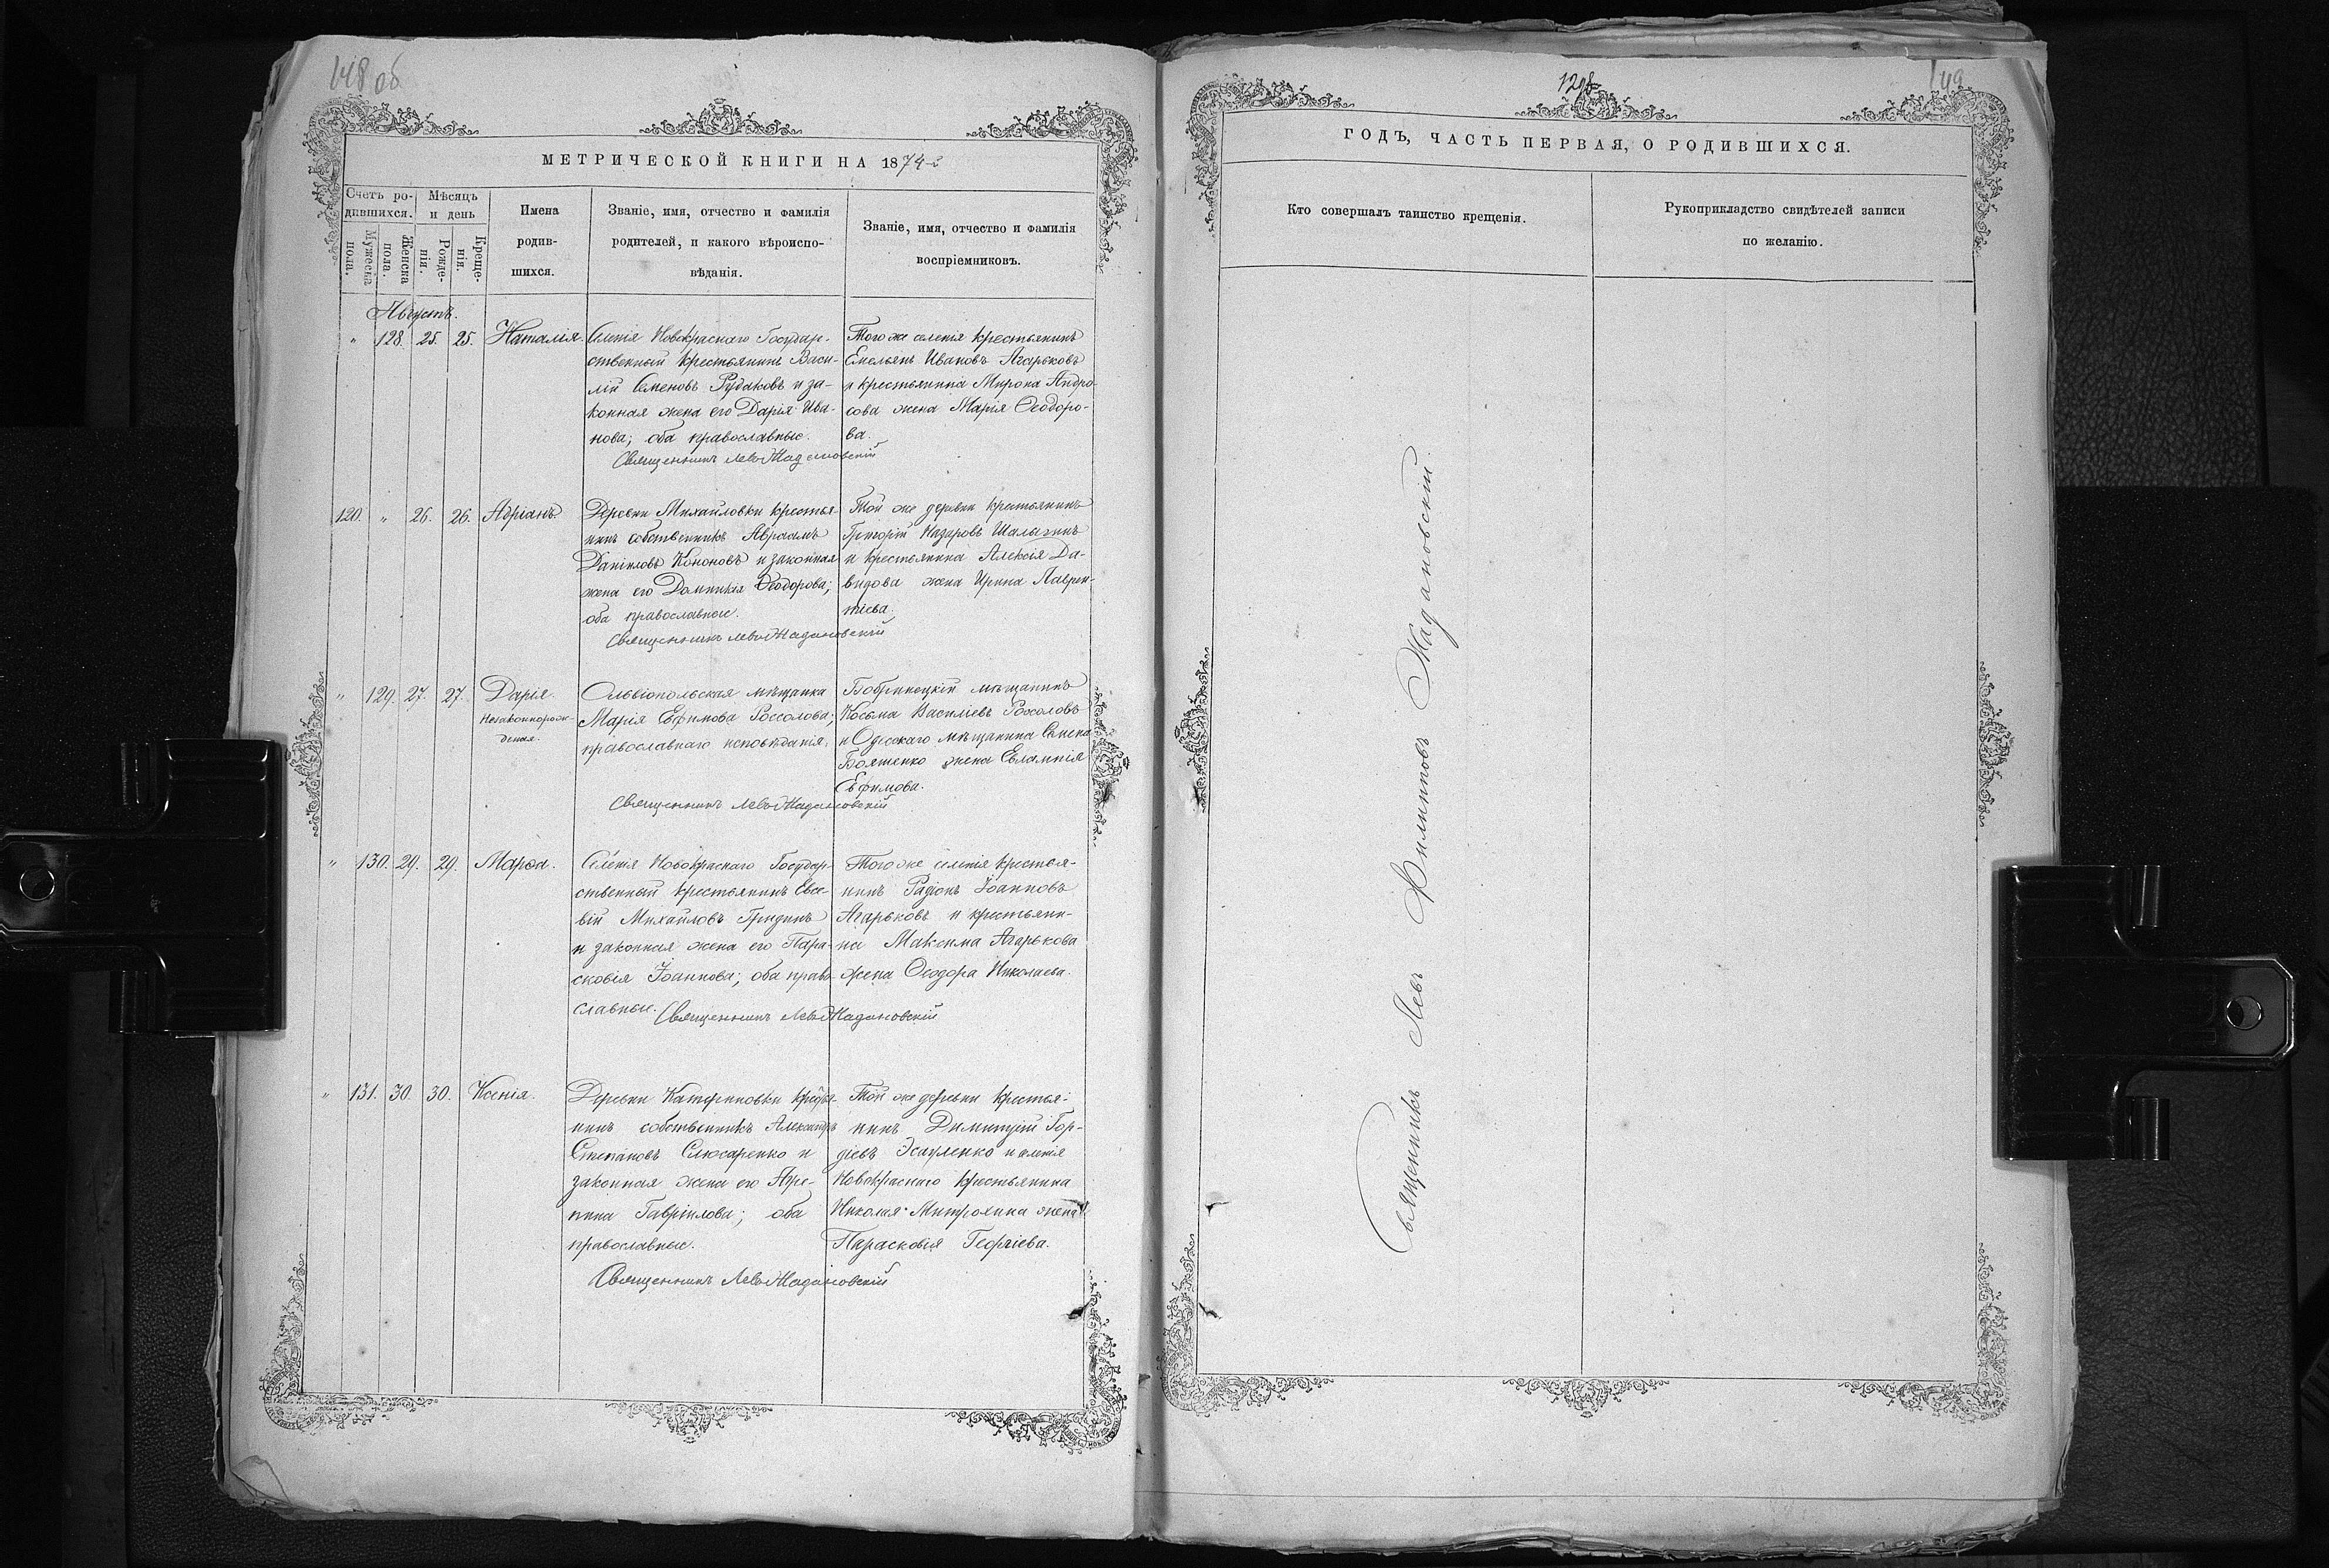 148 об
МЕТРИЧЕСКОЙ КНИГИ НА 1874
Счетъ ро-
дившихся.
Мужеска пола.
Женска пола.
Мѣсяцъ
и день
Рожде-
нія.
Креще-
нія.
Имена
родив-
шихся.
Званіе, имя, отчество и фамилія
родителей, и какого вѣроиспо-
вѣданія.
Званіе, имя, отчество и фамилія
воспріемниковъ.
Августъ.
" 128. 25. 25. Наталія.
Селенія Новокраснаго Государ-
ственный крестьянинъ Васи-
лій Семеновъ Рудаковъ и за-
конная жена его Дарія Ива-
нова; оба православные.
Тогоже селенія крестьянинъ
Емельянъ Ивановъ Агарьковъ
и крестьянина Мирона Андро-
сова жена Марія Ѳеодоро-
ва.
Священникъ Левъ Жадановскій
120. " 26. 26. Адріанъ.
Деревни Михайловки крестья-
нинъ собственникъ Авраамъ
Даніиловъ Кононовъ и законная
жена его Домникія Ѳеодорова;
оба православные.
Той же деревни крестьянинъ
Григорій Назаровъ Шалыгинъ
и крестьянина Алексія Да-
видова жена Ирина Лаврен-
тіева.
Священникъ Левъ Жадановскій
" 129. 27. 27. Дарія.
Незаконнорож-
деная.
Ольвіопольская мѣщанка
Марія Ефимова Россолова;
православнаго исповѣданія.
Бобринецкій мѣщанинъ
Косьма Василіевъ Росоловъ
и Одесскаго мѣщанина Семена
жена Евлампія
Ефимова.
Священникъ Левъ Жадановскій
" 130. 29. 29. Марѳа.
Селенія Новокраснаго Государ-
ственный крестьянинъ Евсе-
вій Михайловъ Гридинъ
и законная жена его Пара-
сковія Іоаннова; оба право-
славные.
Тогоже селенія крестья-
нинъ Радіонъ Іоанновъ
Агарьковъ и крестьяни-
на Максима Агарькова
жена Ѳеодора Николаева.
Священникъ Левъ Жадановскій
" 131. 30. 30. Ксенія.
Деревни Катериновки крестья-
нинъ собственникъ Александръ
Степановъ Слюсаренко и
законная жена его Агре-
пина Гавріилова; оба
православные.
Той же деревни крестья-
нинъ Димитрій Гор-
діевъ Эсауленко и селенія
Новокраснаго крестьянина
Николая Митрохина жена
Парасковія Георгіева.
Священникъ Левъ Жадановскій
149
ГОДЪ, ЧАСТЬ ПЕРВАЯ, О РОДИВШИХСЯ.
Кто совершалъ таинство крещенія.
Рукоприкладство свидѣтелей записи
по желанію.
Священникъ Левъ Филипповъ Жадановскій.